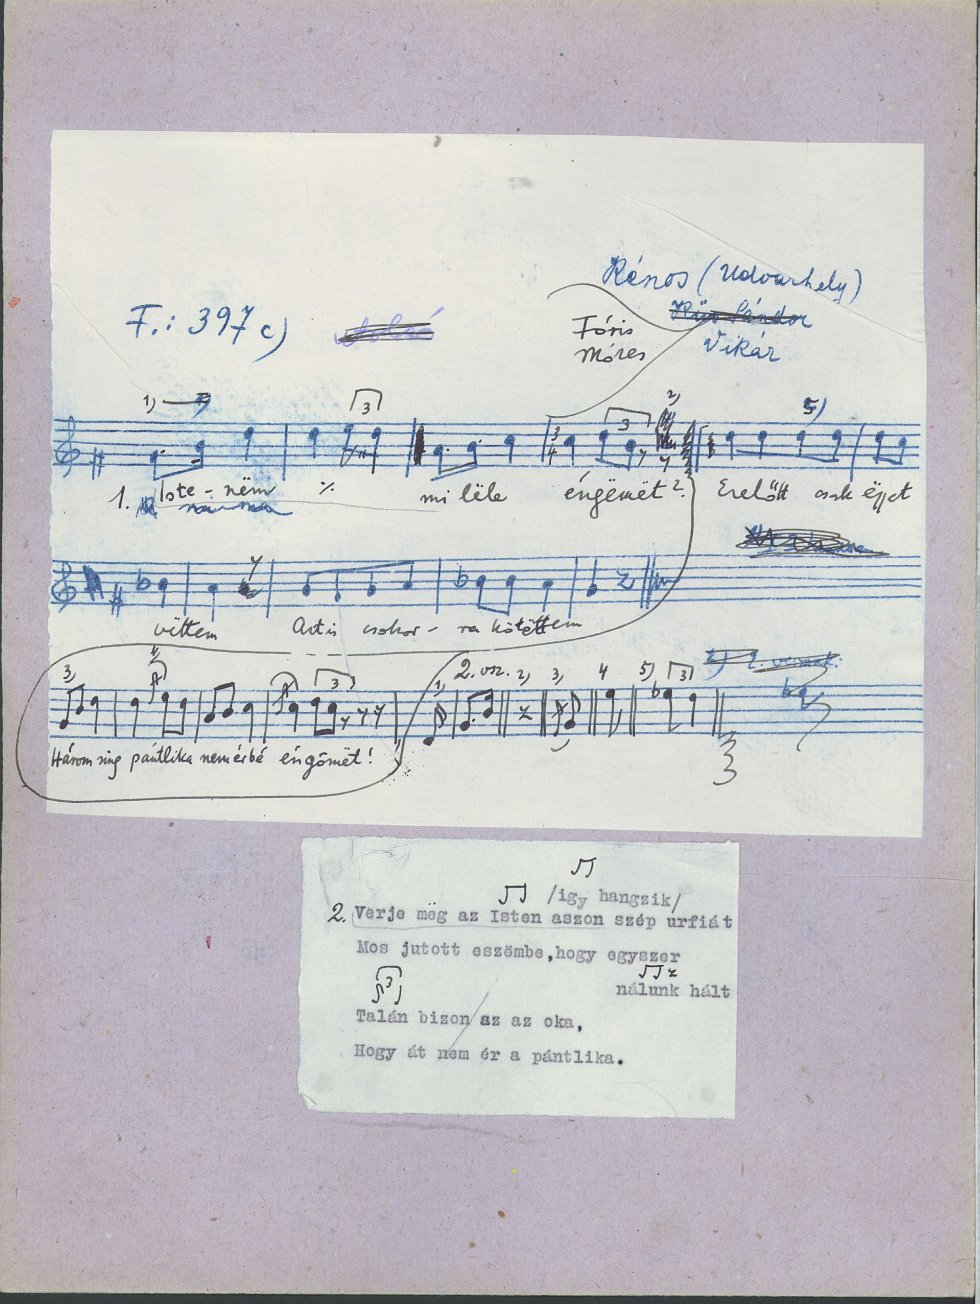 Kénos (Udvarhely)
F.: 397 c)
Fóris
Móres
Vikár
1) 3 2) 5)
3
3
4
1. Iste - něm ٪ mi lëlë éngëmët? Ezelőtt csak éjjet
vittem Azt is csokor - ra kötöttem
3) 2. vsz. 2) 3) 4 5) 3
1)
3
Három sing pántlika nem érbé éngömët!
/igy hangzik/
2. Verje mëg az Isten aszon szép urfiát
Mos jutott eszömbe,hogy egyszer
nálunk hált
3
Talán bizon az az oka,
Hogy át nem ér a pántlika.